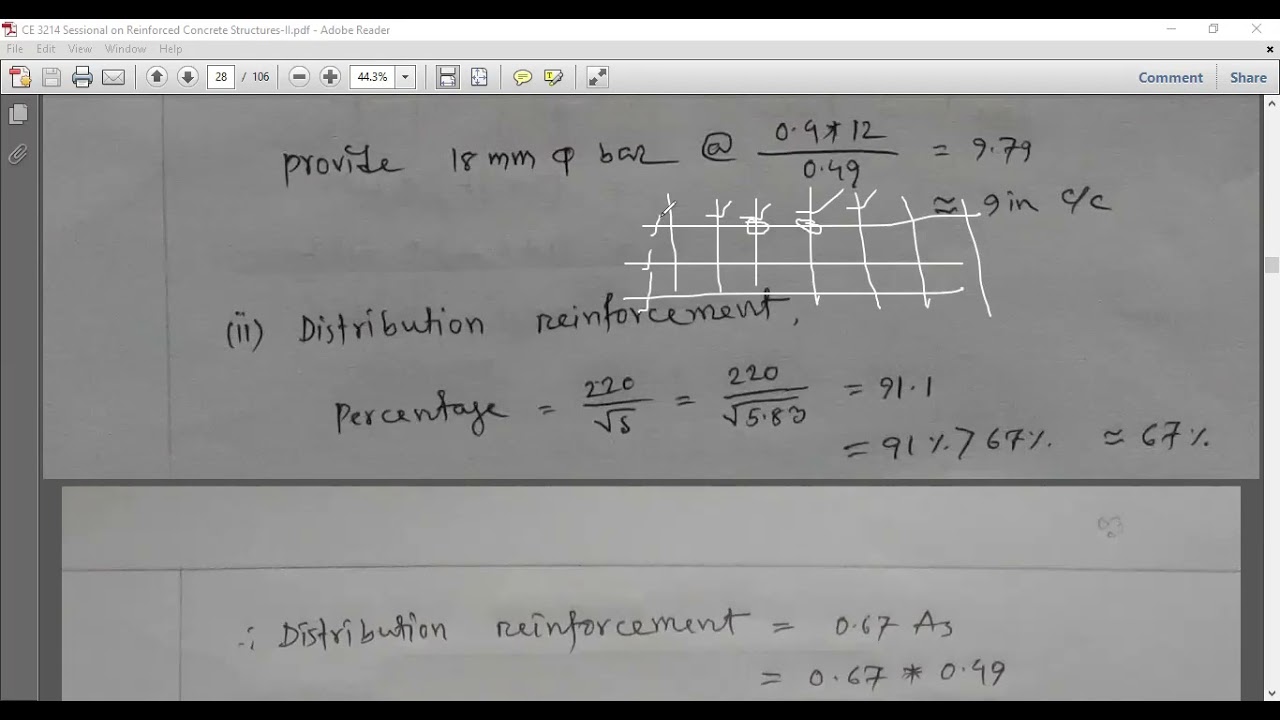 CE 3214 Sessional on Reinforced Concrete Structures-II.pdf - Adobe Reader
File Edit View Window Help
28 / 106 44.3% Comment Share
provide 18 mm φ bar @ 0.4*12 / 0.49 = 9.79
≈ 9 in c/c
(ii) Distribution reinforcement,
Percentage = 220/√S = 220/√5.83 = 91.1
= 91% > 67% ≈ 67%
∴ Distribution reinforcement = 0.67 As
= 0.67 * 0.49